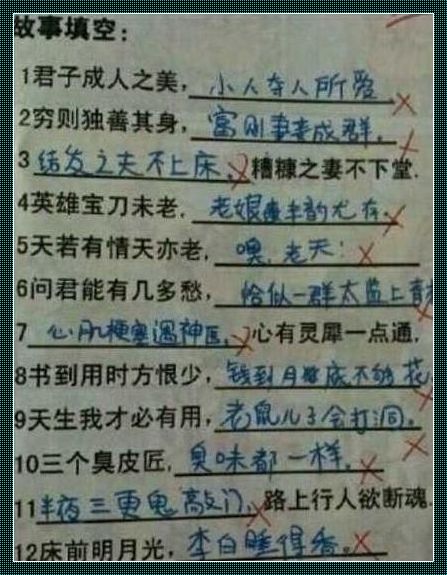 故事填空：
1君子成人之美，小人夺人所爱
2穷则独善其身，富则妻妾成群。
3结发之夫不上床，糟糠之妻不下堂.
4英雄宝刀未老，老娘风韵尤存
5天若有情天亦老，噢，老天！
6问君能有几多愁，恰似一群太监上青
7心肌梗塞遇神医，心有灵犀一点通，
8书到用时方恨少，钱到月底不够花
9天生我才必有用，老鼠儿子会打洞。
10三个臭皮匠，臭味都一样。
11半夜三更鬼敲门，路上行人欲断魂
12床前明月光，李白睡得香。